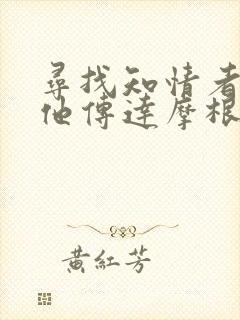 尋找知情者
他傳達摩根
黃紅芳